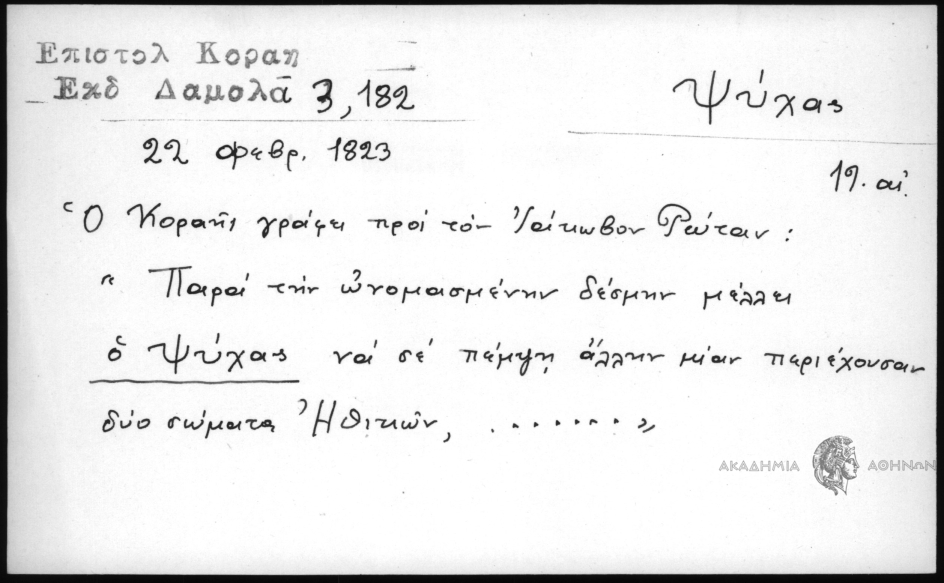 Επιστολ Κοραη
Εκδ Δαμολᾶ 3, 182
Ψύχας
22 φεβρ. 1823
19. αἰ.
Ὁ Κοραῆς γράφει πρὸς τὸν Ἰάκωβον Ρώταν:
"Παρὰ τὴν ὠνομασμένην δέσμην μέλλει
ὁ Ψύχας νά σέ πέμψῃ ἄλλην μίαν περιέχουσαν
δύο σώματα Ἠθικῶν, ........"
ΑΚΑΔΗΜΙΑ ΑΘΗΝΩΝ